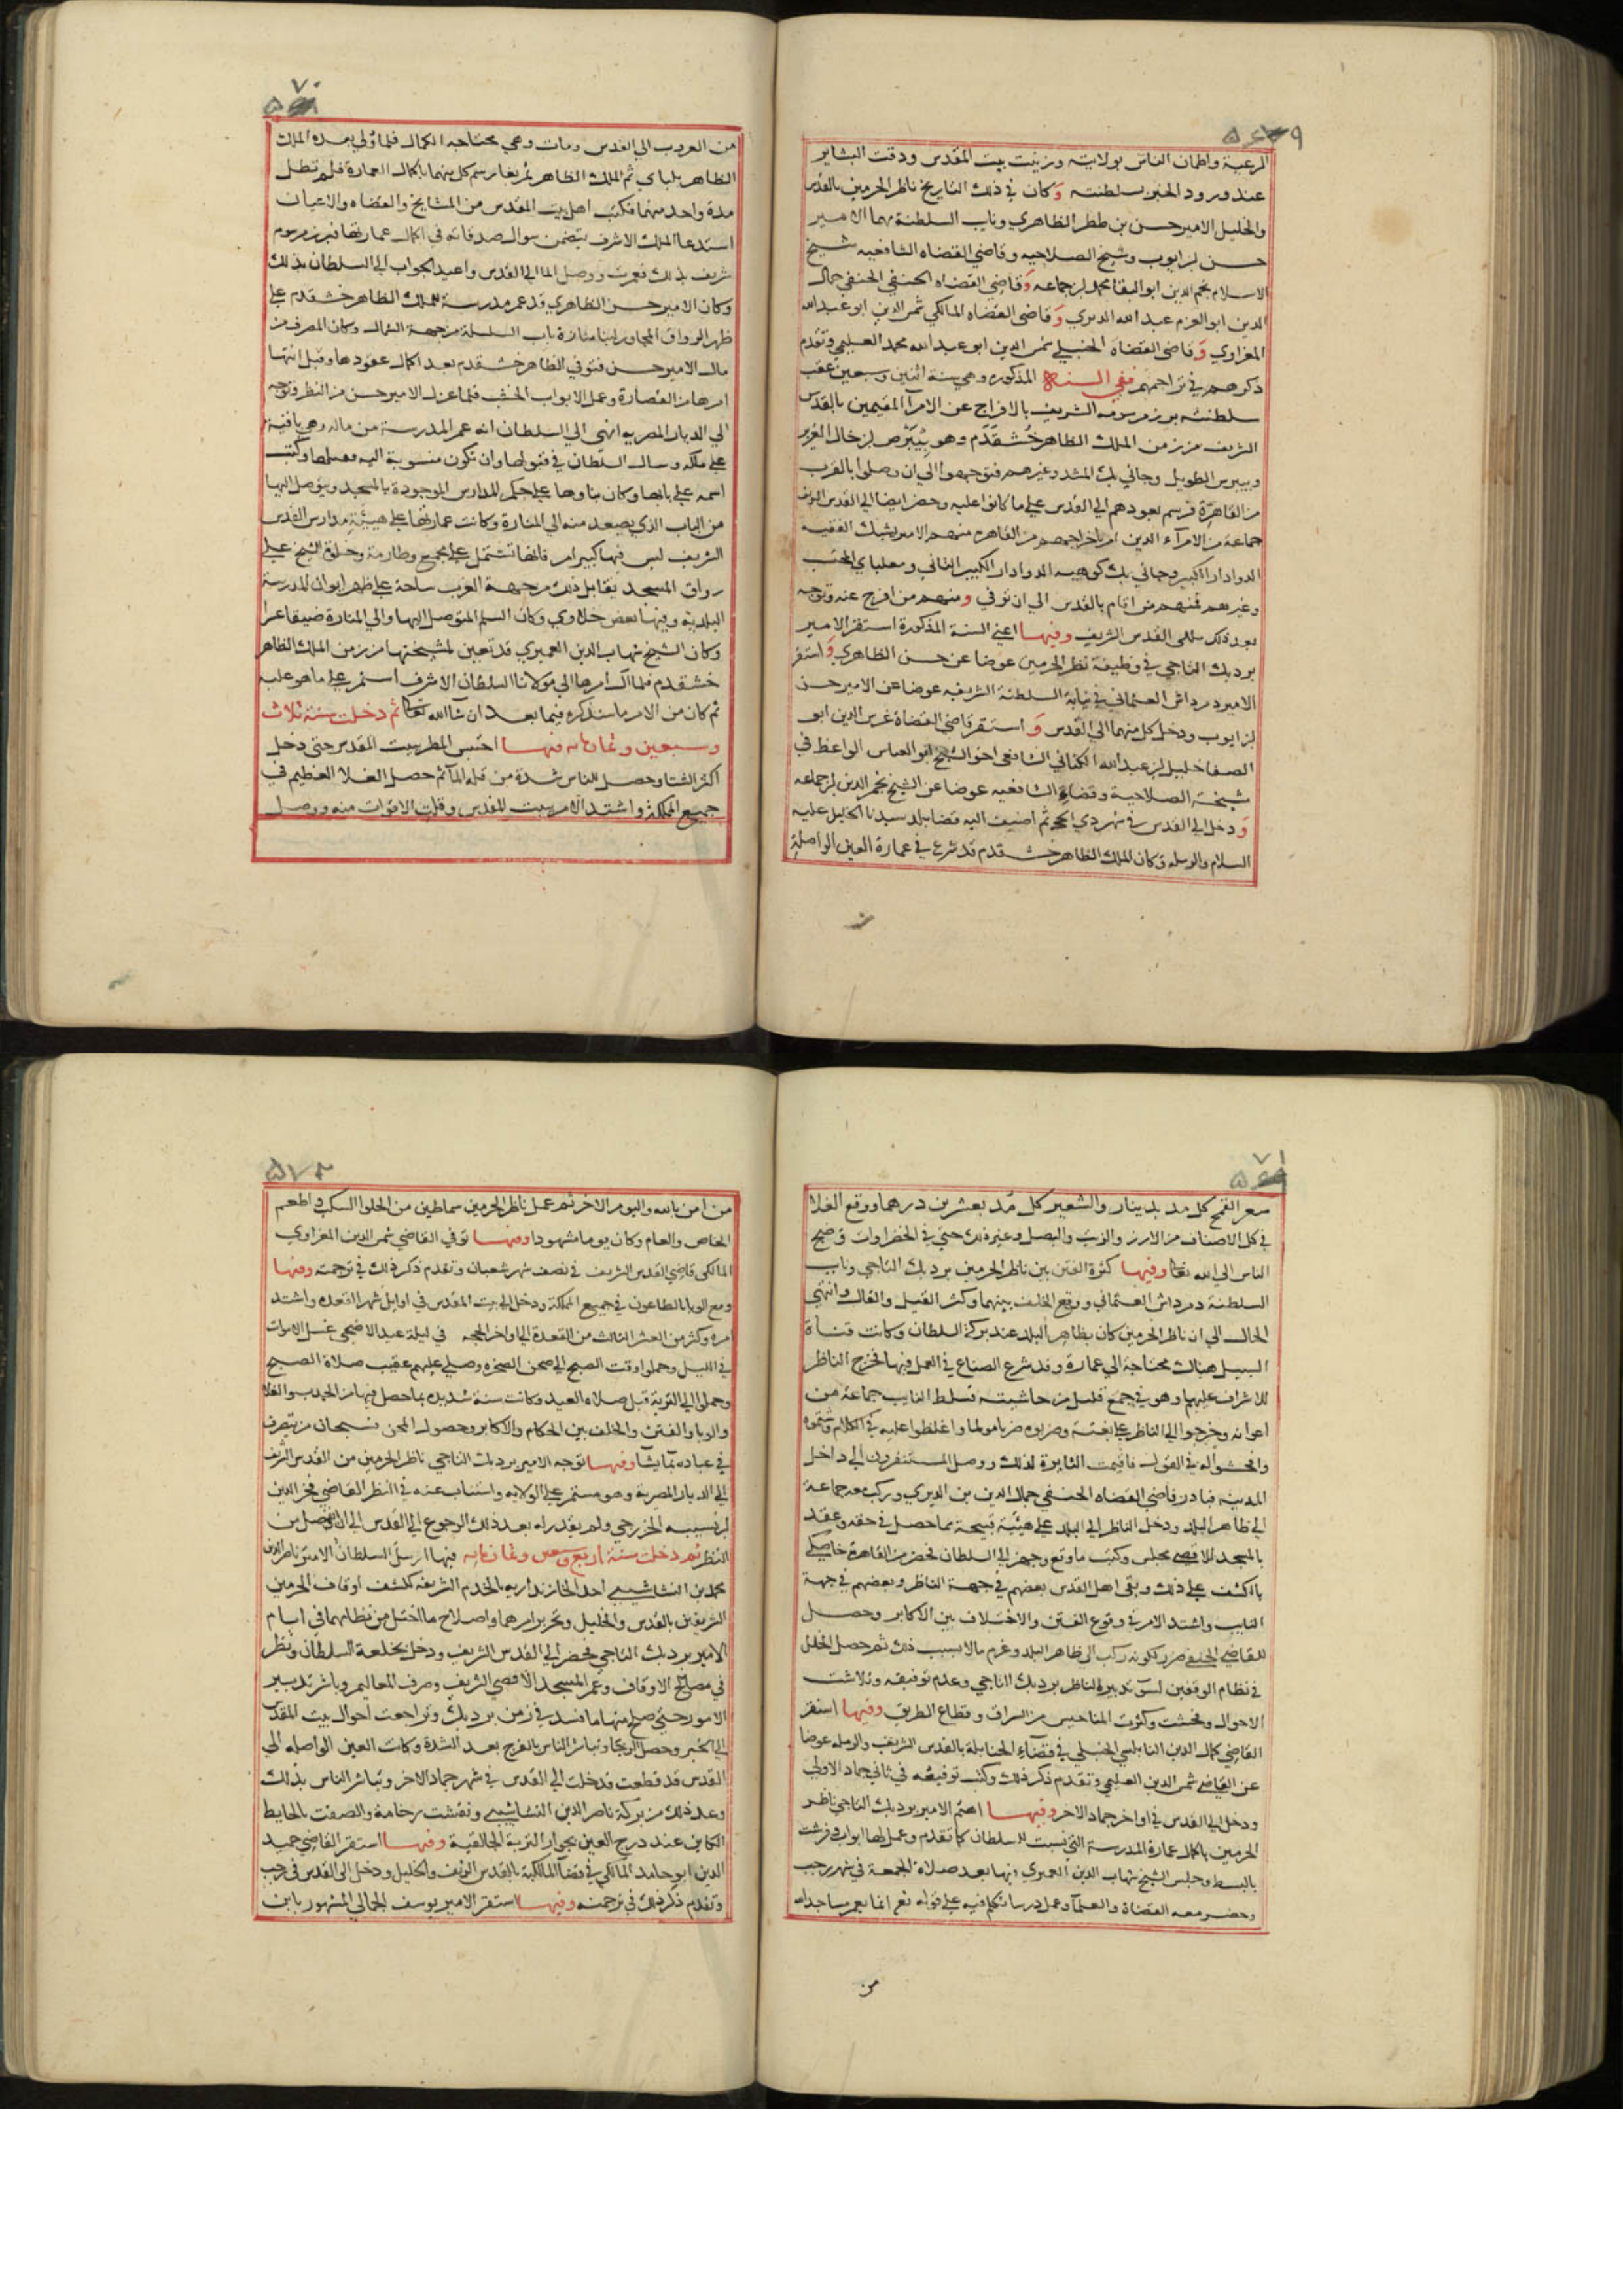 ٥٦٩
الرعية واطمان الناس بولايته وزينت بيت المقدس ودقت البشاير
عند ورود الخبر بسلطنته وكان في ذلك التاريخ ناظر الحرمين بالقدس
والخليل الامير حسن بن ططر الظاهري وناب السلطنة بهما الامير
حسن بن ايوب وشيخ الصلاحيه وقاضي القضاه الشافعيه شيخ
الاسلام نجم الدين ابو البقا محمد بن جماعه وقاضي القضاه الحنفي الحنفي جمال
الدين ابو العزم عبد الله الديري وقاضي القضاه المالكي شمس الدين ابو عبد الله
المغراوي وقاضي القضاه الحنبلي شمس الدين ابو عبد الله محمد العليمي وتقدم
ذكرهم في تراجمهم ففي السنه المذكوره وهي سنة اثنين وسبعين عقب
سلطنته برز مرسومه الشريف بالافراج عن الامرا المقيمين بالقدس
الشريف من زمن الملك الظاهر خشقدم وهو بيبرس بن خال العزيز
وبيبرس الطويل وجاني بك المشد وغيرهم فتوجهوا الي ان وصلوا بالقرب
من القاهرة فرسم بعودهم الي القدس علي ما كانوا عليه وحضر ايضا الي القدس الشريف
جماعة من الامرآء الذين امر باخراجهم من القاهره منهم الامير يشبك الفقيه
الدوادار الكبير وجاني بك كوهيه الدوادار الكبير الثاني ومغلباي المحتسب
وغيرهم فمنهم من اقام بالقدس الي ان توفي ومنهم من افرج عنه وتوجه
بعد ذلك الى القدس الشريف وفيها اعني السنة المذكورة استقر الامير
بردبك التاجي في وظيفة نظر الحرمين عوضا عن حسن الظاهري واستقر
الامير دمرداش العثماني في نيابة السلطنة الشريفه عوضا عن الامير حسن
بن ايوب ودخل كل منهما الي القدس و استقر قاضي القضاة غرس الدين ابو
الصفا خليل بن عبد الله الكناني الشافعي اخو الشيخ ابو العباس الواعظ في
شيخة الصلاحية وقضاء الشافعيه عوضا عن الشيخ نجم الدين بن جماعه
ودخل الي القدس في شهر ذي الحجه ثم اضيف اليه قضا بلد سيدنا الخليل عليه
السلام والرمله وكان الملك الظاهر خشقدم قد شرع في عمارة العين الواصلة
من
٧٠
من العروب الي القدس ومات وهي محتاجه الكمال فلما ولي بعده الملك
الظاهر بلباي ثم الملك الظاهر تمربغا رسم كل منهما باكمال العمارة فلم تطل
مدة واحد منهما فكتب اهل بيت المقدس من المشايخ والقضاه والاعيان
استدعا الملك الاشرف يتضمن سوال صدقاته في اكمال عمارتها فبرز مرسوم
شريف بذلك فعمرت ووصل الما الي القدس واعيد الجواب الي السلطان بذلك
وكان الامير حسن الظاهري قد عمر مدرسة للملك الظاهر خشقدم علي
ظهر الرواق المجاور لبنا منارة باب السلسلة من جهة الشمال وكان المصرف من
مال الامير حسن فتوفي الظاهر خشقدم بعد اكمال عقودها وقبل انتها
امرها من القصارة وعمل الابواب الخشب فلما عزل الامير حسن من النظر وتوجه
الي الديار المصريه انهى الي السلطان انه عمر المدرسة من ماله وهي باقية
علي ملكه وسال السلطان في قبولها وان تكون منسوبة اليه فقبلها وكتب
اسمه علي بابها وكان بناوها علي حكم المدارس الموجودة بالمسجد ويتوصل اليها
من الباب الذي يصعد منه الي المنارة وكانت عمارتها علي هيئة مدارس القدس
الشريف ليس فيها كبير امر فانها تشتمل علي مجمع وطارمة وخلوة الشيخ علي
رواق المسجد يقابل ذلك من جهة الغرب ساحة علي ظهر ايوان المدرسة
البلدية وفيها بعض خلاوي وكان السلم المتوصل اليها والي المنارة ضيقا عسرا
وكان الشيخ شهاب الدين العميري قد تعين لمشيختها من زمن الملك الظاهر
خشقدم فلما ال امرها الي مولانا السلطان الاشرف استمر علي ما هو عليه
ثم كان من الامر ما سنذكره فيما بعد ان شا الله تعالى ثم دخلت سنة ثلاث
وسبعين وثمانمايه فيها احتبس المطر ببيت المقدس حتي دخل
اكثر الشتا وحصل للناس شدة من قلة المآ ثم حصل الغلا العظيم في
جميع المملكة واشتد الامر ببيت المقدس وقلت الاقوات منه ووصل
٧١
سعر القمح كل مد بدينار والشعير كل مد بعشرين درهما ووقع الغلا
في كل الاصناف من الارز والزيت والبصل وغير ذلك حتي في الخضراوات وضج
الناس الي الله تعالى وفيها كثرة الفتن بين ناظر الحرمين بردبك التاجي وناب
السلطنة دمرداش العثماني ووقع الخلف بينهما وكثر القيل والقال وانتهي
الحال الي ان ناظر الحرمين كان بظاهر البلد عند بركة السلطان وكانت قناة
السبيل هناك محتاجة الي عمارة وقد شرع الصناع في العمل فيها فخرج الناظر
للاشراف عليهم وهو في جمع قليل من حاشيته فسلط النايب جماعة من
اعوانه وخرجوا الي الناظر علي بغتة وضربوه ضربا مولما واغلظوا عليه في الكلام وشتموه
وافحشوا له في القول فاقيمت الثايرة لذلك ووصل المستنفرون الي داخل
المدينه فبادر قاضي القضاه الحنفي جمال الدين بن الديري وركب معه جماعة
الي ظاهر البلد ودخل الناظر الي البلد علي هيئة قبيحة مما حصل في حقه وعقد
بالمسجد الاقصي مجلس وكتب ما وقع وجهز الي السلطان فحضر من القاهرة خاصكي
بالكشف علي ذلك وبقي اهل القدس بعضهم في جهة الناظر وبعضهم في جهة
النايب واشتد الامر في وقوع الفتن والاختلاف بين الاكابر وحصل
للقاضي الحنفي ضرر لكونه ركب الي ظاهر البلد وغرم مالا بسبب ذلك ثم حصل الخلل
في نظام الوقفين لسو تدبير الناظر بردبك التاجي وعدم توفيقه وتلاشت
الاحوال وفحشت وكثرت المناحيس من السراق وقطاع الطريق وفيها استقر
القاضي كمال الدين النابلسي الحنبلي في قضاء الحنابلة بالقدس الشريف والرمله عوضا
عن القاضي شمس الدين العليمي وتقدم ذكر ذلك وكتب توقيعه في ثاني جماد الاولي
ودخل الي القدس في اواخر جماد الاخر وفيها اهتم الامير بردبك التاجي ناظر
الحرمين باكمال عمارة المدرسة التي نسبت للسلطان كما تقدم وعمل لها ابواب وفرشت
بالبسط وجلس الشيخ شهاب الدين العميري فيها بعد صلاة الجمعة في شهر رجب
وحضر معه القضاة والعلمآ وعمل درسا تكلم فيه علي قوله تعالى انما يعمر مساجد الله
من
٥٧٢
من امن بالله واليوم الاخر ثم عمل ناظر الحرمين سماطين من الحلوا السكب واطعم
الخاص والعام وكان يوما مشهودا وفيها توفي القاضي شمس الدين المغراوي
المالكي قاضي القدس الشريف في نصف شهر شعبان وتقدم ذكر ذلك في ترجمته وفيها
وقع الوبا بالطاعون في جميع المملكة ودخل الي بيت المقدس في اوايل شهر القعده واشتد
امره وكثر من العشر الثالث من القعدة الي اواخر الحجه في ليلة عيد الاضحى غسل الاموات
في الليل وحملوا وقت الصبح الي صحن الصخره وصلي عليهم عقيب صلاة الصبح
وحملوا الي التربة قبل صلاه العيد وكانت سنة شديدة بما حصل فيها من الجدب والغلا
والوبا والفتن والخلف بين الحكام والاكابر وحصول المحن فسبحان من يتصرف
في عباده بما يشا وفيها توجه الامير بردبك التاجي ناظر الحرمين من القدس الشريف
الي الديار المصرية وهو مستمر علي الولايه واستناب عنه في النظر القاضي فخر الدين
بن نسيبه الخزرجي ولم يقدر له بعد ذلك الرجوع الي القدس الي ان انفصل من
النظر ثم دخلت سنة اربع وسبعين وثمانمايه فيها ارسل السلطان الامير ناصر الدين
محمد بن النشاشيبي احد الخازنداريه بالخدم الشريفه لكشف اوقاف الحرمين
الشريفين بالقدس والخليل وتحرير امرهما واصلاح ما اختل من نظامهما في ايام
الامير بردبك التاجي فحضر الي القدس الشريف ودخل بخلعة السلطان ونظر
في مصالح الاوقاف وعمر المسجد الاقصي الشريف وصرف المعاليم وباشر تدبير
الامور حتي صلح منها ما فسد في زمن بردبك وتراجعت احوال بيت المقدس
الي الخير وحصل الرجا وتباشر الناس بالفرج بعد الشدة وكانت العين الواصله الي
القدس قد قطعت فدخلت الي القدس في شهر جماد الاخر وتباشر الناس بذلك
وعد ذلك من بركة ناصر الدين النشاشيبي ونقشت رخامة والصقت بالحايط
الكاين عند درج العين بجوار التربة الجالقية وفيها استقر القاضي حميد
الدين ابو حامد المالكي في قضا المالكية بالقدس الشريف والخليل ودخل الى القدس في رجب
وتقدم ذكر ذلك في ترجمته وفيها استقر الامير يوسف الجمالي المشهور بابن